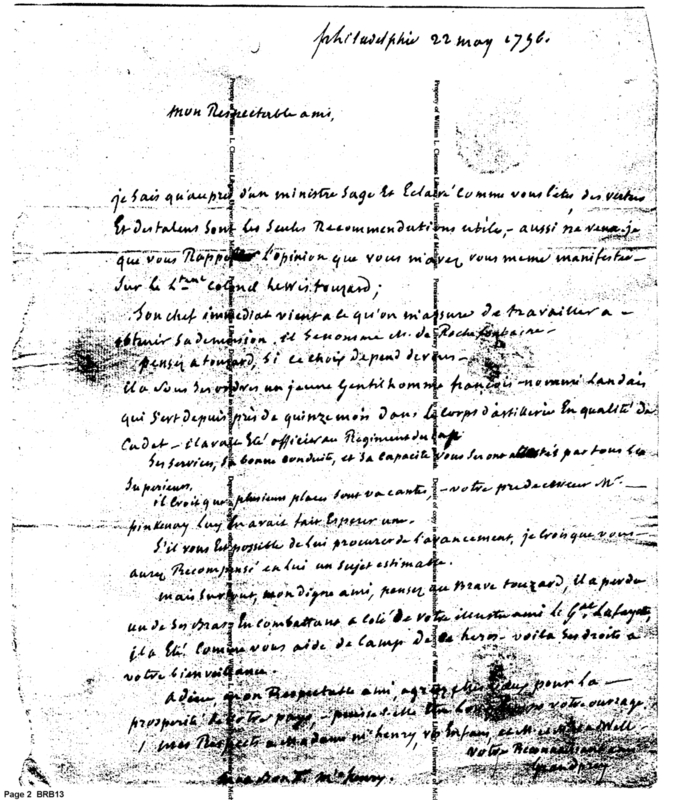 philadelphie 22 may 1796.
mon Respectable ami,
je sais qu'aupres d'un ministre sage Et Eclairé Comme vous l'etes des vertus
Et des talens sont les seules Recommendations utile,- aussi ne
que vous l'opinion que vous m'avez vous meme manifester-
sur le colonel Lewis touzard;
son chef immediat vient a ce qu'on m'assure de travailler a -
obtenir sa demission, il se nomme M. de Rochefontaine-
pensez a touzard, si ce choix depend de vous-
il a sous ses ordres un jeune Gentilhomme françois nommé Landais
qui sert depuis près de quinze mois dans le corps d'artillerie En qualité de
Cadet - il avait Eté officier au Regiment du
ses services, sa bonne conduite, et sa capacité vous seront attestés par tous ses
superieurs,
il croit que plusieurs places sont vacantes, - votre predecesseur Mr. -
pinkenay luy En avait fait Esperer une.
s'il vous Est possible de lui procurer de l'avancement, je crois que vous
aurez Recompensé en lui un sujet estimable.
mais surtout, mon digne ami, pensez au Brave touzard, il a perdu
un de ses Bras En combattant a coté de votre illustre ami le Gal. Lafayette,
il a Eté Comme vous aide de Camp de ce heros - voila ses droits a
votre bienveillance.
adieu, mon Respectable ami agréez pour la -
prosperité de votre pays, - votre ouvrage,
mes Respects a Madame mc henry, vos Enfans, et
votre
mc henry.
Property of William L. Clements Library, University of
Property of William L. Clements Library, University of
Page 2 BRB13